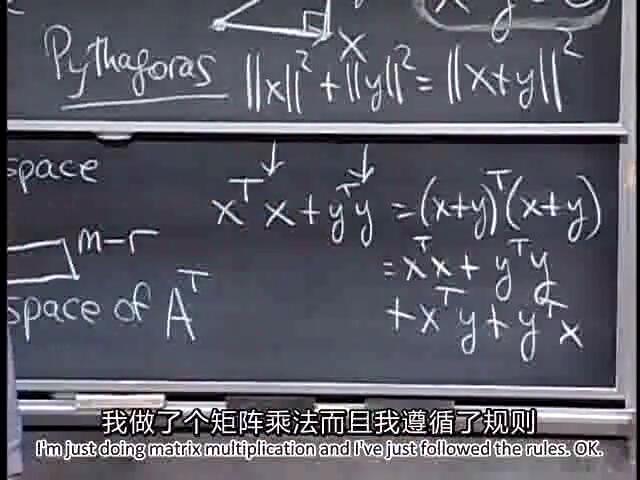 x
Pythagoras ||x||² + ||y||² = ||x+y||²
space
xᵀx + yᵀy = (x+y)ᵀ(x+y)
m-r
= xᵀx + yᵀy
space of Aᵀ
+ xᵀy + yᵀx
我做了个矩阵乘法而且我遵循了规则
I'm just doing matrix multiplication and I've just followed the rules. OK.